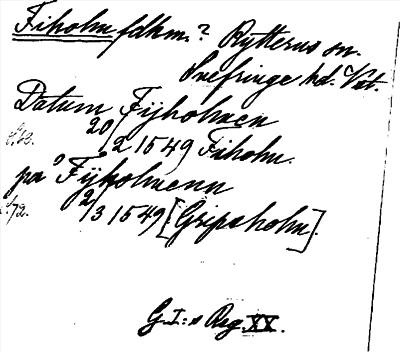 Fiholm falkm.? Rytterns sn.
Snefringe hd. Vst.
Datum Fijholmen
20/2 1549 Fiholm.
på Fijholmenn
2/3 1549 [Gripsholm].
G. I:s Reg. XX.